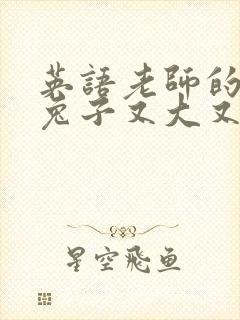 英語老師的
兔子又大又
星空飛鱼